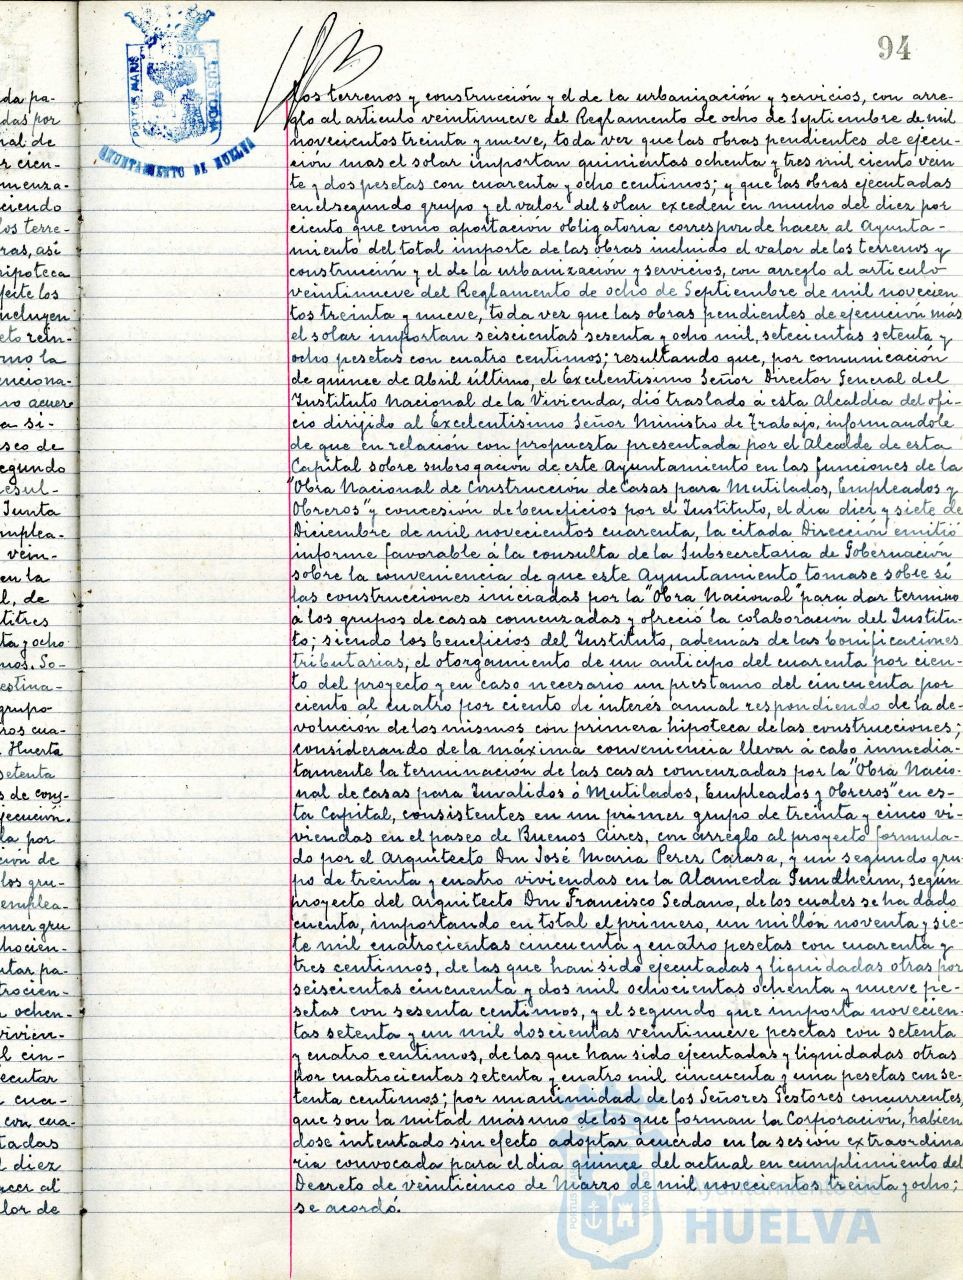 94
PORTUS MARIS
CUSTODIA
AYUNTAMIENTO DE HUELVA
los terrenos y construcción y el de la urbanización y servicios, con arre-
glo al articulo veintinueve del Reglamento de ocho de Septiembre de mil
novecientos treinta y nueve, toda vez que las obras pendientes de ejecu-
ción mas el solar importan quinientas ochenta y tres mil ciento vein
te y dos pesetas con cuarenta y ocho centimos; y que las obras ejecutadas
en el segundo grupo y el valor del solar exceden en mucho del diez por
ciento que como aportación obligatoria corresponde hacer al Ayunta-
miento del total importe de las obras incluido el valor de los terrenos y
construcción y el de la urbanización y servicios, con arreglo al articulo
veintinueve del Reglamento de ocho de Septiembre de mil novecien
tos treinta y nueve, toda vez que las obras pendientes de ejecución más
el solar importan seiscientas sesenta y ocho mil, setecientas setenta y
ocho pesetas con cuatro centimos; resultando que, por comunicación
de quince de Abril último, el Excelentisimo Señor Director General del
Instituto Nacional de la Vivienda, dió traslado á esta Alcaldia del ofi-
cio dirigido al Excelentisimo Señor Ministro de Trabajo, informandole
de que en relación con propuesta presentada por el Alcalde de esta
Capital sobre subrogación de este Ayuntamiento en las funciones de la
"Obra Nacional de Construcción de Casas para Mutilados, Empleados y
Obreros" y concesión de beneficios por el Instituto, el dia diez y siete de
Diciembre de mil novecientos cuarenta, la citada Dirección emitió
informe favorable á la consulta de la Subsecretaria de Gobernación
sobre la conveniencia de que este Ayuntamiento tomase sobre sí
las construcciones iniciadas por la "Obra Nacional" para dar termino
á los grupos de casas comenzadas y ofreció la colaboración del Institu-
to; siendo los beneficios del Instituto, ademas de las bonificaciones
tributarias, el otorgamiento de un anticipo del cuarenta por cien-
to del proyecto y en caso necesario un prestamo del cincuenta por
ciento al cuatro por ciento de interés anual respondiendo de la de-
volución de los mismos con primera hipoteca de las construcciones;
considerando de la máxima conveniencia llevar á cabo inmedia-
tamente la terminación de las casas comenzadas por la "Obra Nacio-
nal de Casas para Invalidos ó Mutilados, Empleados y Obreros" en es-
ta Capital, consistentes en un primer grupo de treinta y cinco vi-
viendas en el paseo de Buenos Aires, con arreglo al proyecto formula-
do por el Arquitecto Don José Maria Perez Carasa, y un segundo gru-
po de treinta y cuatro viviendas en la Alameda Sundheim, según
proyecto del Arquitecto Don Francisco Sedano, de los cuales se ha dado
cuenta, importando en total el primero, un millón noventa y sie-
te mil cuatrocientas cincuenta y cuatro pesetas con cuarenta y
tres centimos, de las que han sido ejecutadas y liquidadas otras por
seiscientas cincuenta y dos mil ochocientas ochenta y nueve pe-
setas con sesenta centimos, y el segundo que importa novecien-
tas setenta y un mil doscientas veintinueve pesetas con setenta
y cuatro centimos, de las que han sido ejecutadas y liquidadas otras
por cuatrocientas setenta y cuatro mil cincuenta y una pesetas con se-
tenta centimos; por unanimidad de los Señores Gestores concurrentes,
que son la mitad más uno de los que forman la Corporación, habien
dose intentado sin efecto adoptar acuerdo en la sesión extraordina
ria convocada para el dia quince del actual en cumplimiento del
Decreto de veinticinco de Marzo de mil novecientos treinta y ocho;
se acordó.
Ayuntamiento de
HUELVA